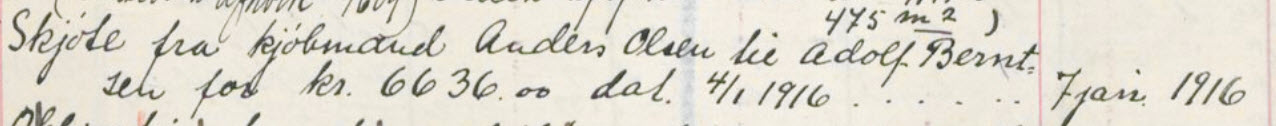 475 m2 )
Skjøte fra kjøbmand Anders Olsen til Adolf Bernt-
sen for kr. 6636.00 dat. 4/1 1916 . . . . . . 7 jan. 1916